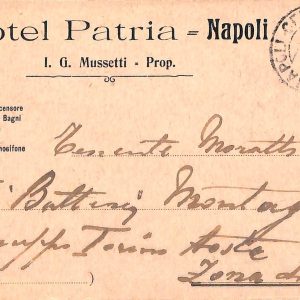 otel Patria = Napoli
I. G. Mussetti - Prop.
censore
Bagni
mosifone
Tenente Moratt
Batteria Montag
uppo Torino Aosta
Zona d